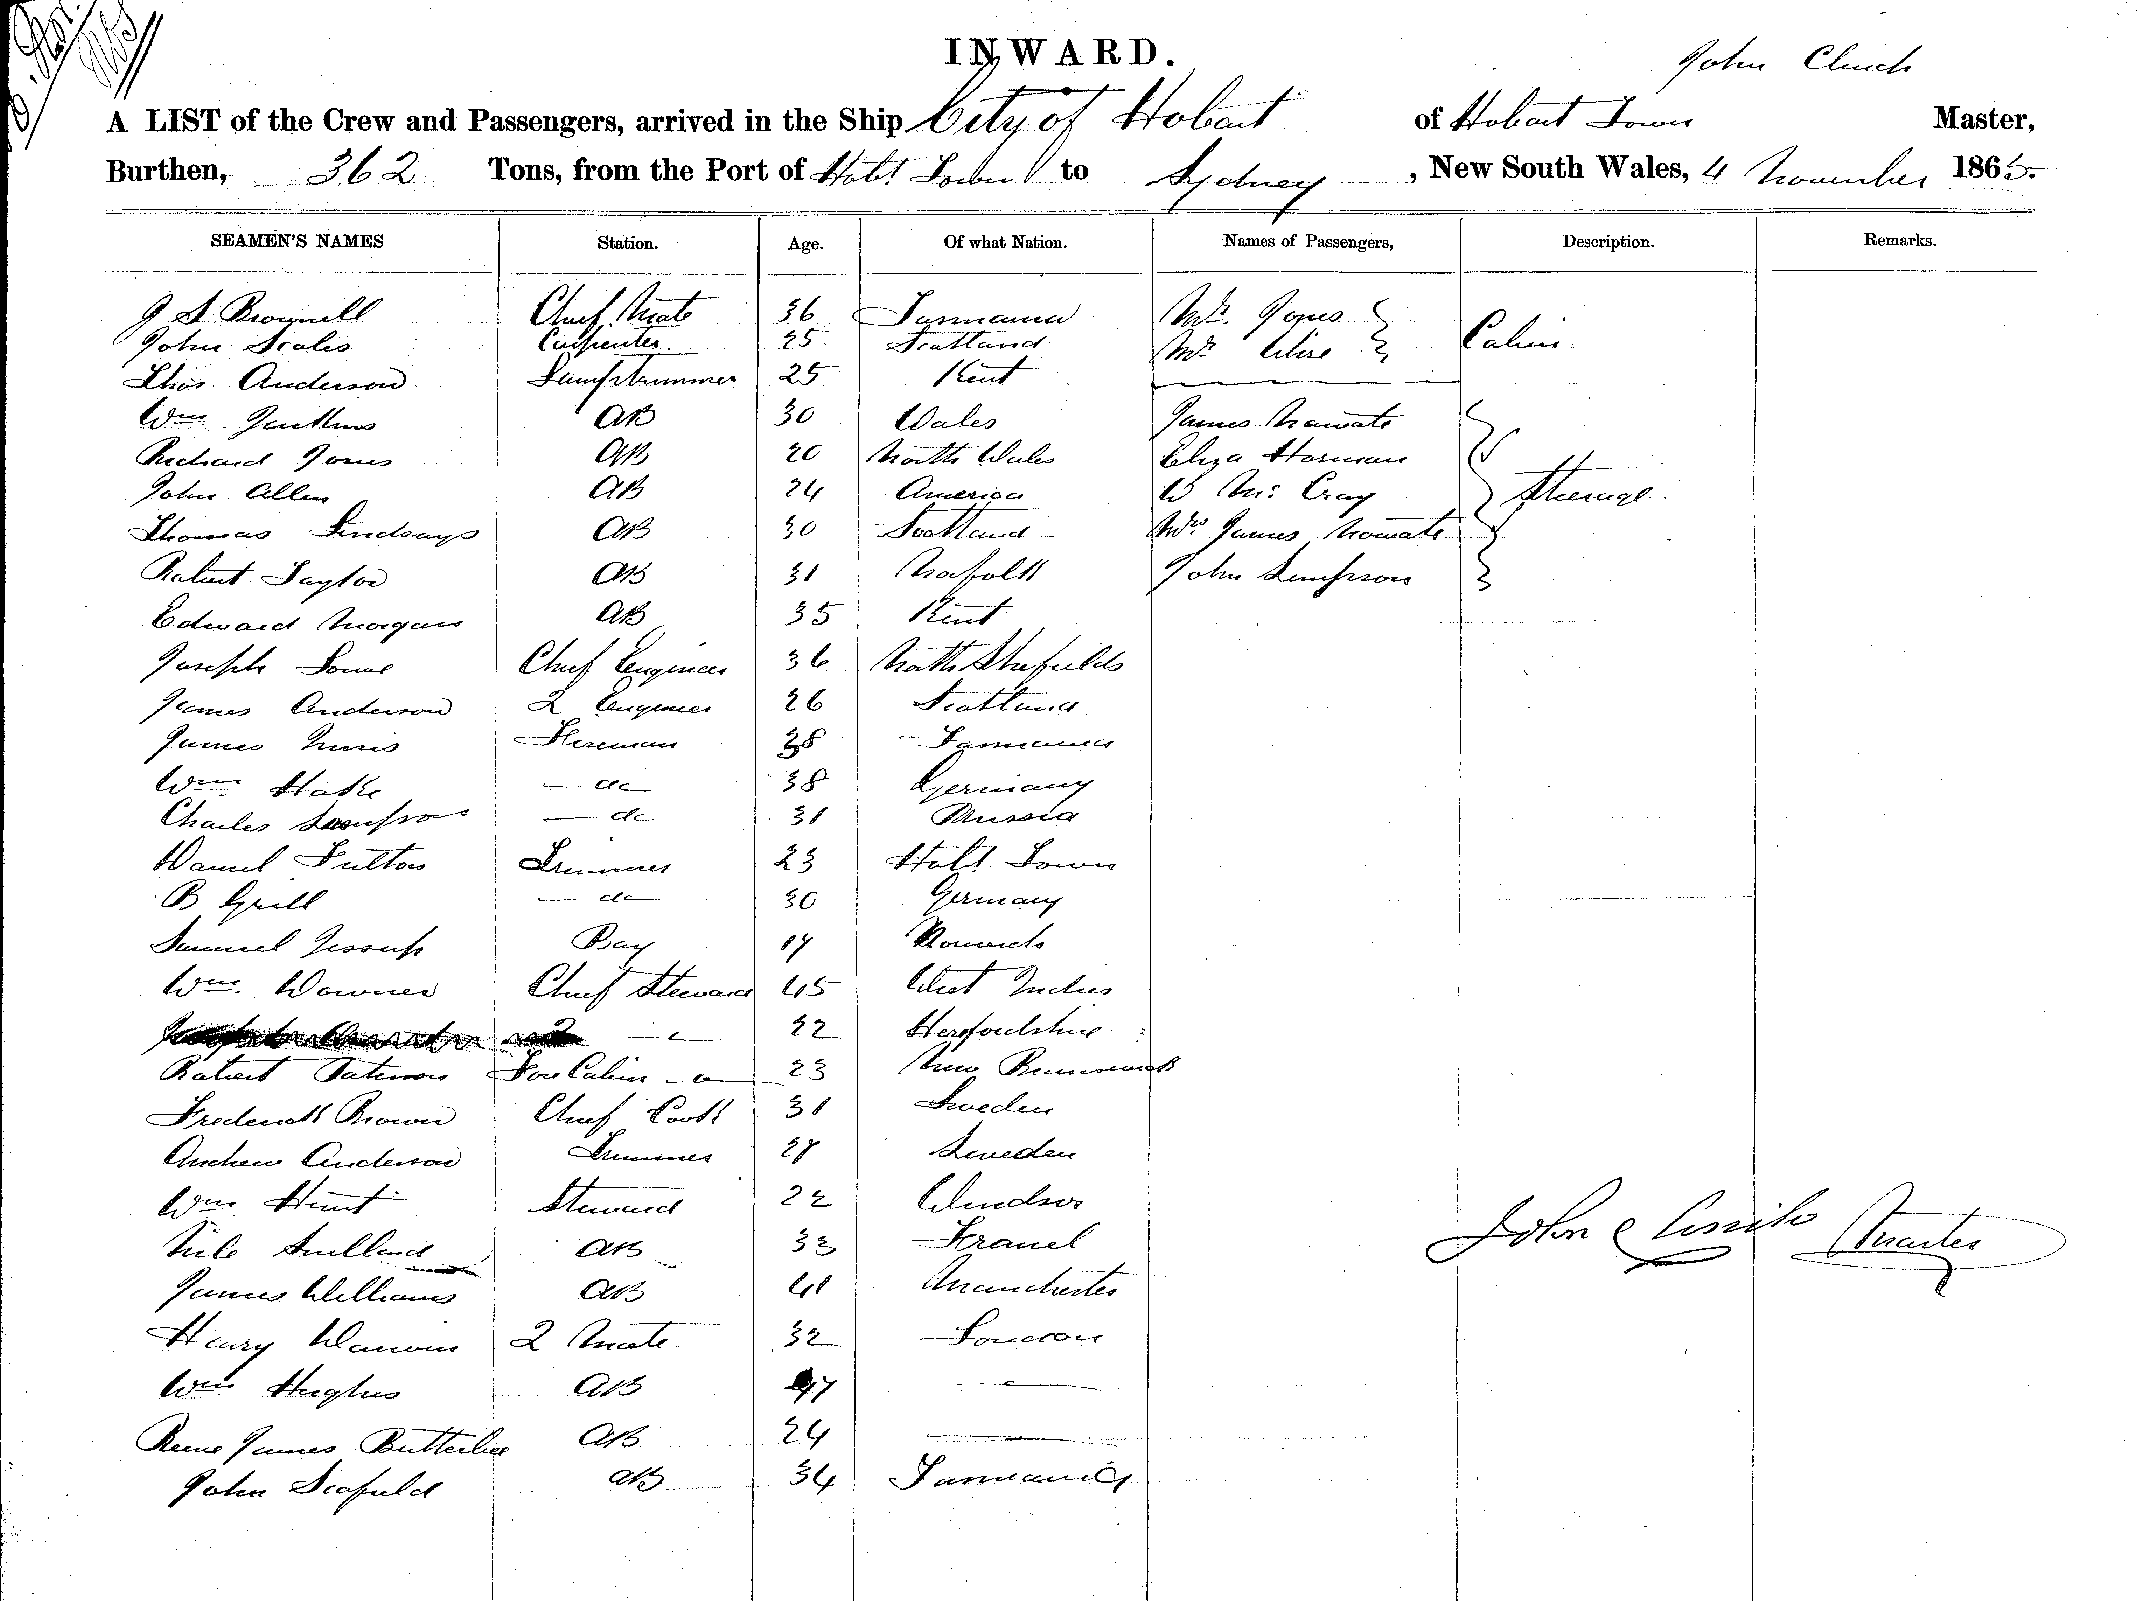 INWARD.
John Clinch
A LIST of the Crew and Passengers, arrived in the Ship City of Hobart of Hobart Town Master,
Burthen, 362 Tons, from the Port of Hobt Town to Sydney, New South Wales, 4 November 1865.
SEAMEN'S NAMES Station. Age. Of what Nation. Names of Passengers, Description. Remarks.
J S Brownell Chief Mate 36 Tasmania Mr. Jones
John Scales Carpenter 25 Scotland Mr Cabin
Thos. Anderson Lamptrimmer 25 Kent
Wm Jenkins AB 30 Wales James
Richard Jones AB 20 North Wales Eliza Harman
John Allen AB 24 America W Mc Cray Steerage
Thomas Lindsays AB 30 Scotland Mrs James
Robert Taylor AB 31 Norfolk John Simpson
Edward Morgan AB 35 Kent
Joseph Chief Engineer 36 North Shefields
James Anderson 2 Engineer 26 Scotland
James Fireman 38 Tasmania
Wm Hake do 38 Germany
Charles do 31
Daniel Fulton Trimmer 23 Hobt Town
B Grill do 30 Germany
Samuel Jessup Boy 17 Norwich
Wm. Downer Chief Steward 45 West Indies
22 Herefordshire
Robert Fore Cabin 23 New Brunswick
Frederick Brown Chief Cook 31 Sweden
Andrew Anderson Trimmer 27 Sweden
Wm Hunt Steward 22 Windsor
AB 33
John Clinch Master
James Williams AB 41 Manchester
Henry 2 Mate 32 London
Wm Hughes AB 47
James AB 24
John Scofield AB 34 Tasmania